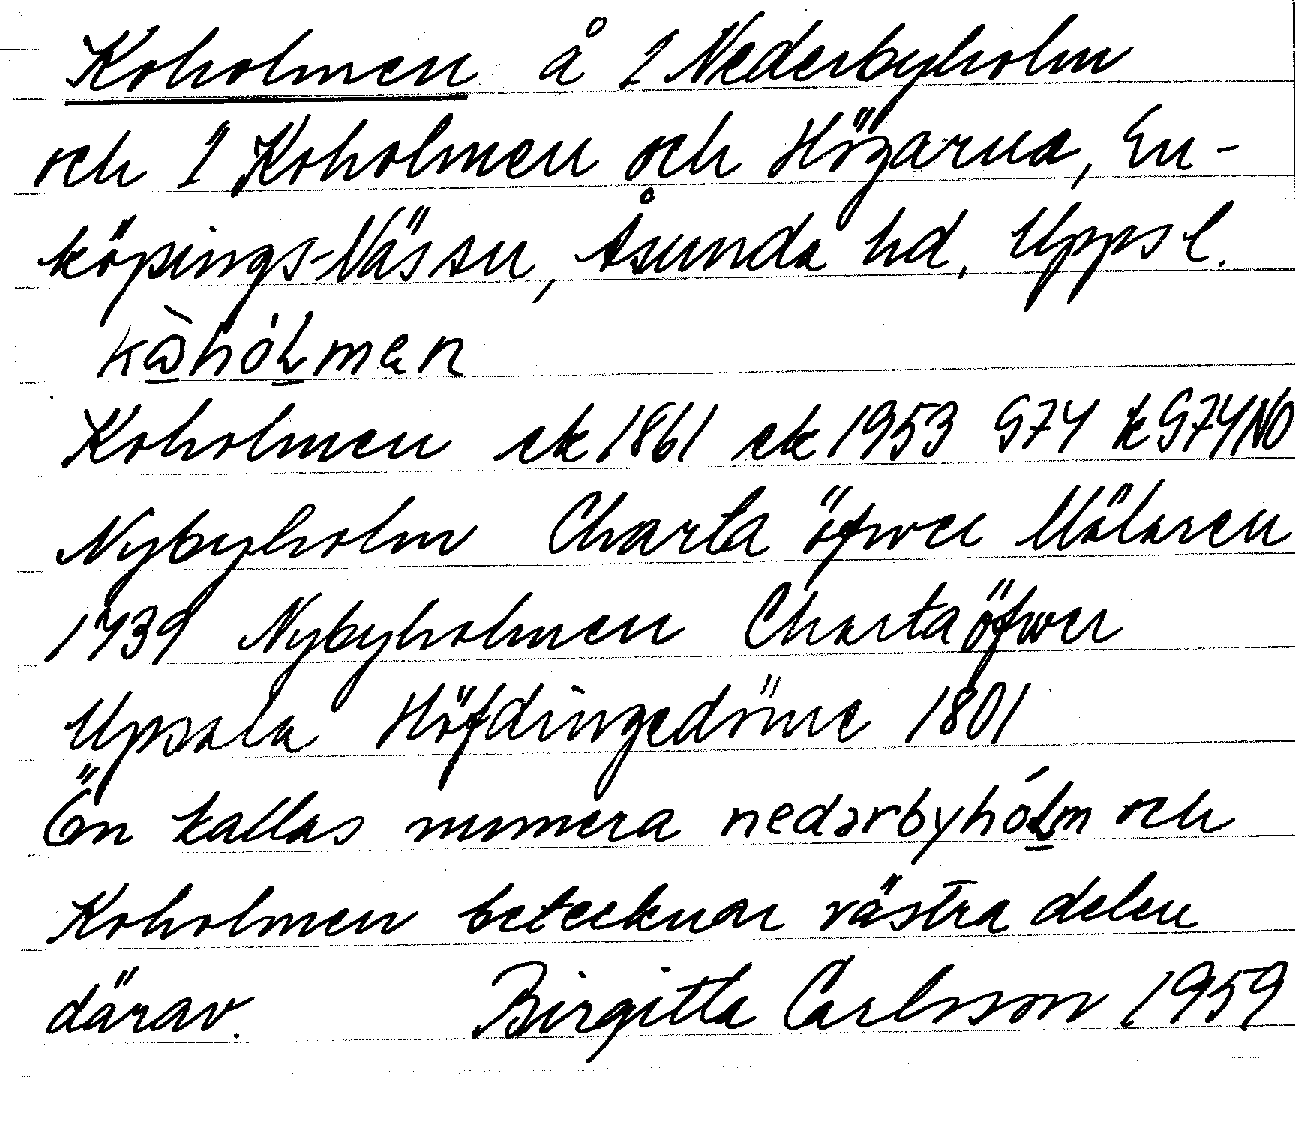 Koholmen å 1 Nederbyholm
och 1 Koholmen och Högarna, En-
köpings-Näs sn, Åsunda hd, Upps l.
Koholmen ek 1861 ek 1953 G74 kG74NO
Nybyholm Charta öfwer Mälaren
1739 Nybyholmen Charta öfwer
Upsala Höfdingedöme 1801
Ön kallas numera nedərbyhólm och
Koholmen betecknar västra delen
därav. Birgitta Carlsson 1959